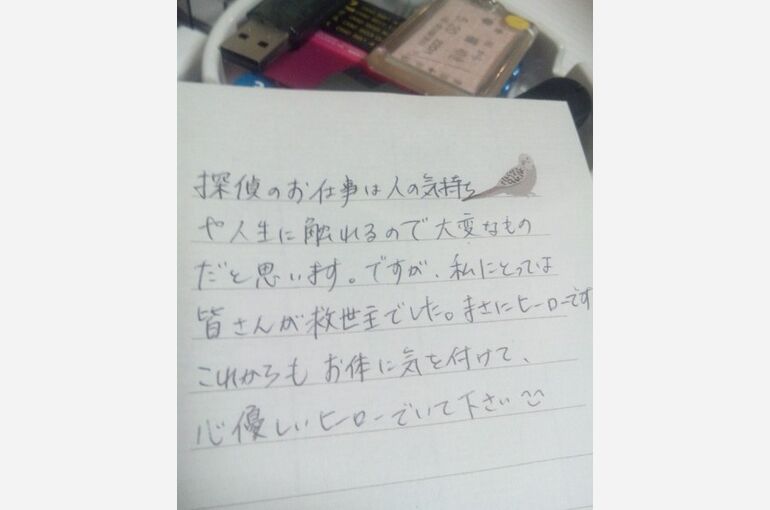 探偵のお仕事は人の気持ち
や人生に触れるので大変なもの
だと思います。ですが、私にとっては
皆さんが救世主でした。まさにヒーローです
これからもお体に気を付けて、
心優しいヒーローでいて下さい